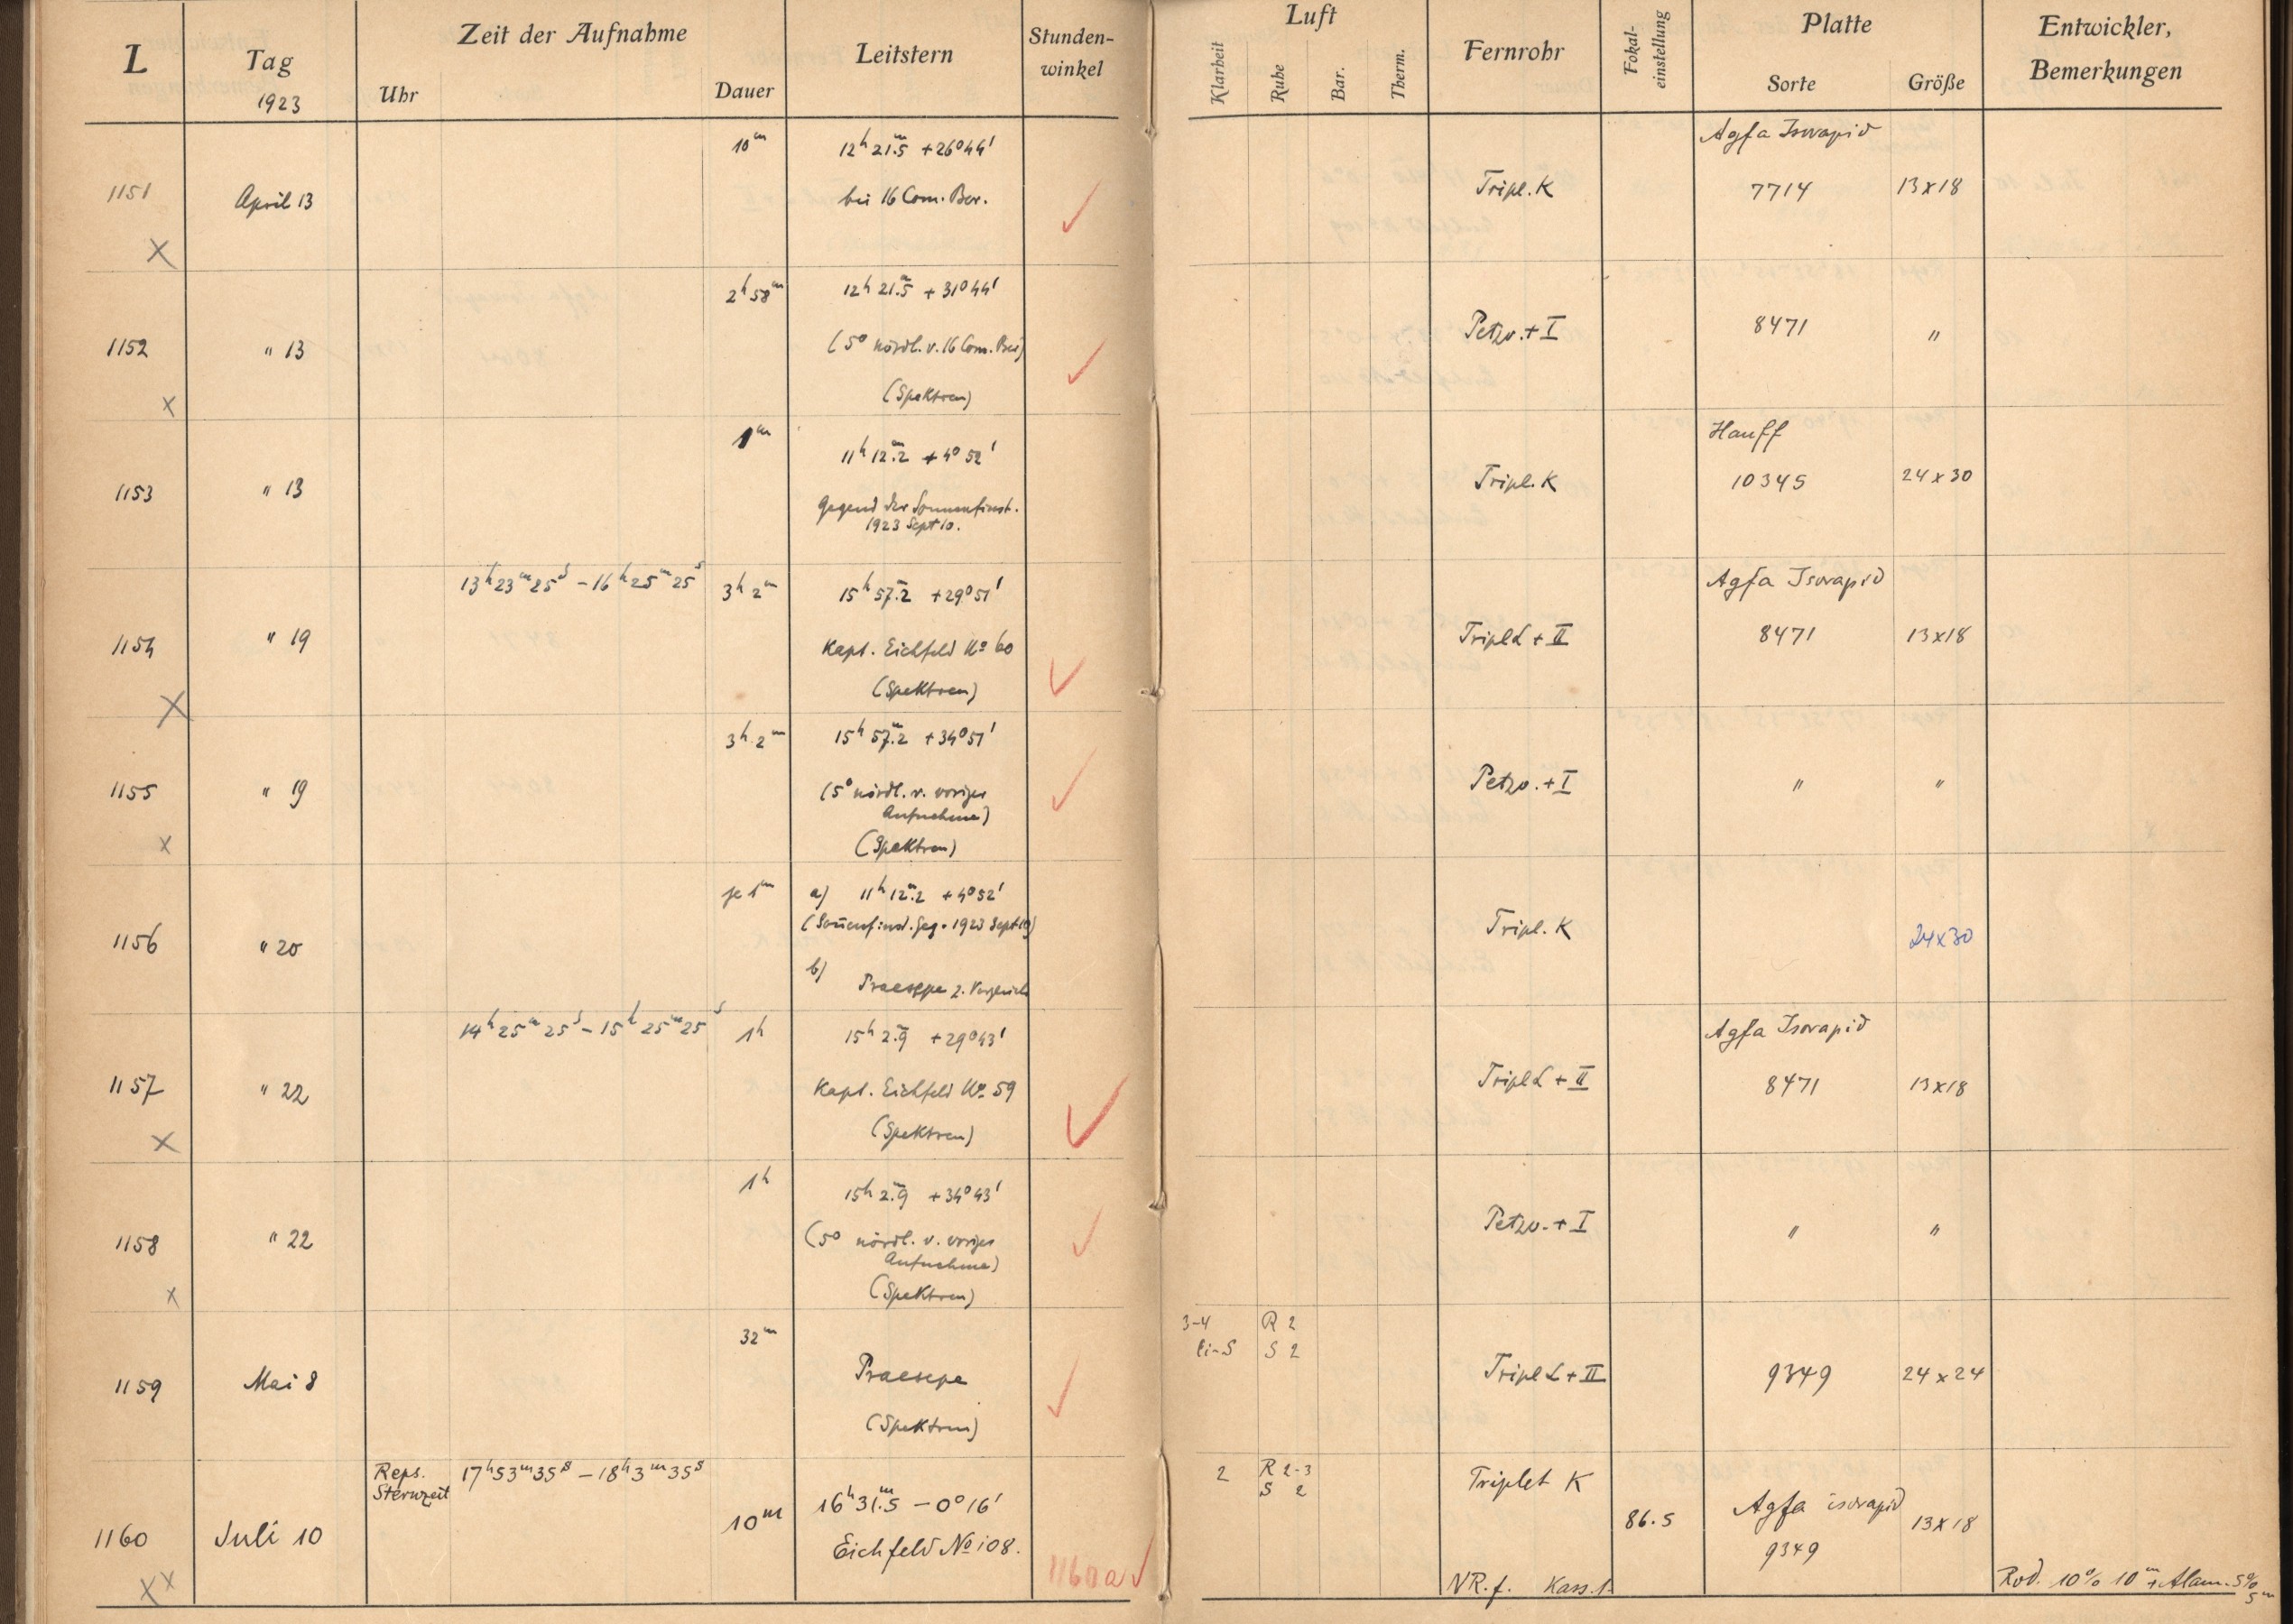 L
Tag
1923
Zeit der Aufnahme
Uhr
Dauer
Leitstern
Stunden-
winkel
Luft
Klarheit
Ruhe
Bar.
Therm.
Fernrohr
Fokal-
einstellung
Platte
Sorte
Größe
Entwickler,
Bemerkungen
1151
April 13
10m
12h 21m.5 +26°44'
bei 16 Com. Ber.
✓
Tripl. K
Agfa Isorapid
7714
13x18
X
1152
" 13
2h 58m
12h 21m.5 + 31°44'
(5° nördl. v. 16 Com. Ber)
(Spektren)
✓
Petzv. + I
8471
"
x
1153
" 13
1m
11h 12m.2 + 4° 52'
Gegend der Sonnenfinst.
1923 Sept 10.
Tripl. K
Hauff
10345
24 x 30
1154
" 19
13h 23m 25s – 16h 25m 25s
3h 2m
15h 57m.2 +29°51'
Kapt. Eichfeld No 60
(Spektren)
✓
Tripl L + II
Agfa Isorapid
8471
13x18
X
1155
" 19
3h 2m
15h 57m.2 +34°51'
(5° nördl. v. voriger
Aufnahme)
(Spektren)
✓
Petzv. + I
"
"
x
1156
" 20
je 1m
a) 11h 12m.2 +4°52'
(Soñenfinst. Geg. 1923 Sept 10)
b)
Praesepe z. Vergleich
Tripl. K
24x30
1157
" 22
14h 25m 25s – 15h 25m 25s
1h
15h 2m.9 +29°43'
Kapt. Eichfeld No 59
(Spektren)
✓
Tripl L + II
Agfa Isorapid
8471
13x18
X
1158
" 22
1h
15h 2m.9 +34°43'
(5° nördl. v. voriger
Aufnahme)
(Spektren)
✓
Petzv. + I
"
"
x
1159
Mai 8
32m
Praesepe
(Spektren)
✓
3-4
R 2
S 2
Tripl L + II
9349
24 x 24
1160
Juli 10
Reps.
Sternzeit
17h 53m 35s – 18h 3m 35s
10m
16h 31m.5 – 0° 16'
Eichfeld No 108.
1160a ✓
2
R 2-3
S 2
Triplet K
NR. f. Kass. 1.
86.5
Agfa isorapid
9349
13x18
Rod. 10% 10m + Alaun. 5%
5m
xx